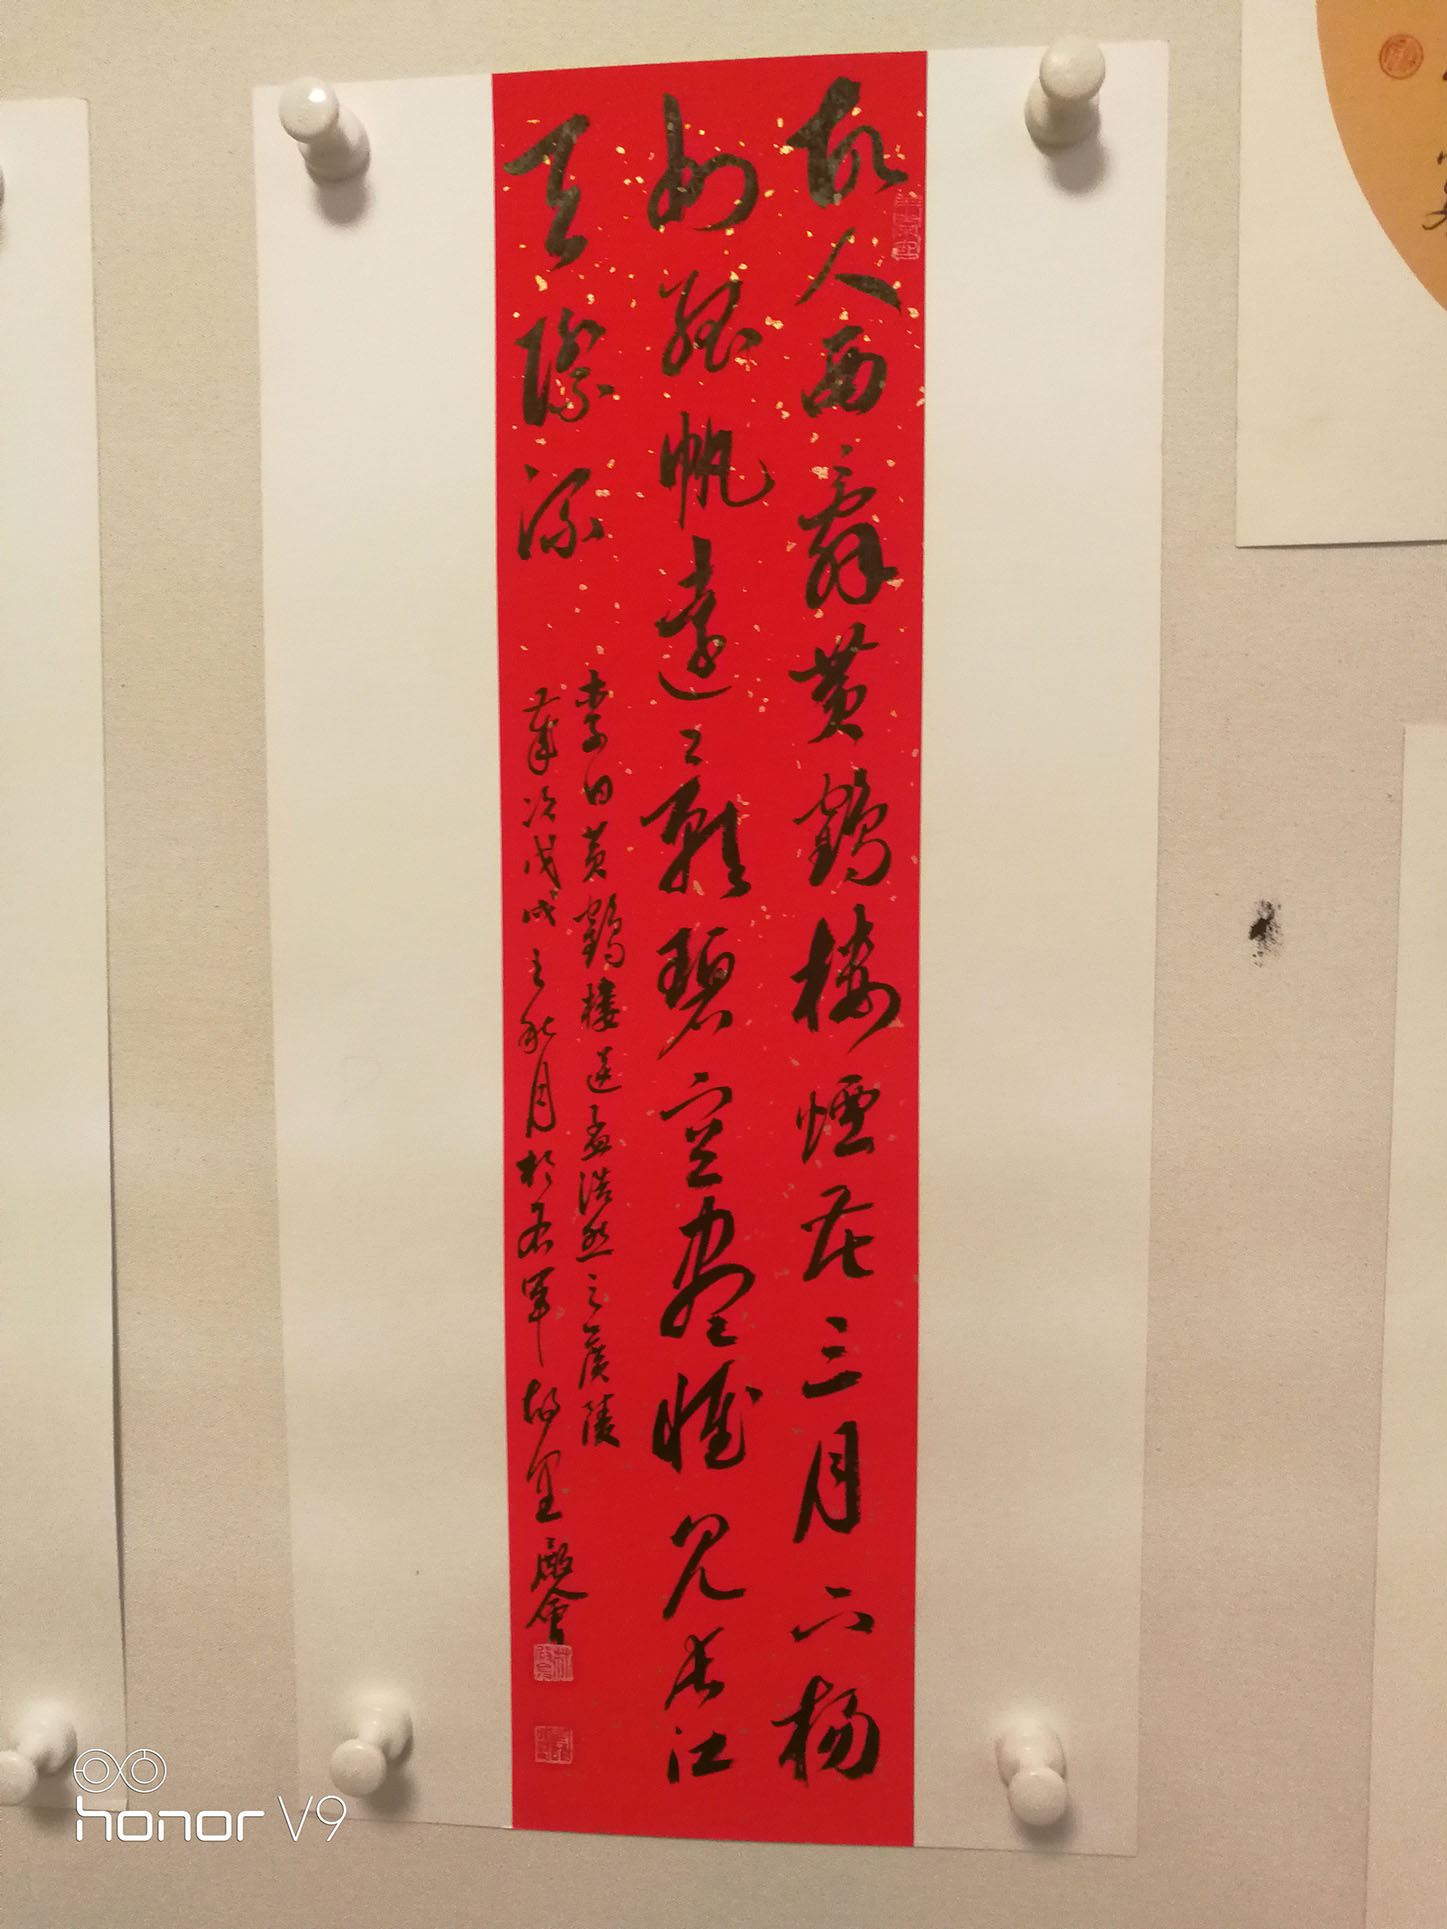 故人西辭黃鶴樓煙花三月下楊
州孤帆遠影碧空盡惟見長江
天際流
李白黃鶴樓送孟浩然之廣陵
歲次戊戌之秋月於右軍故里殿會
honor V9